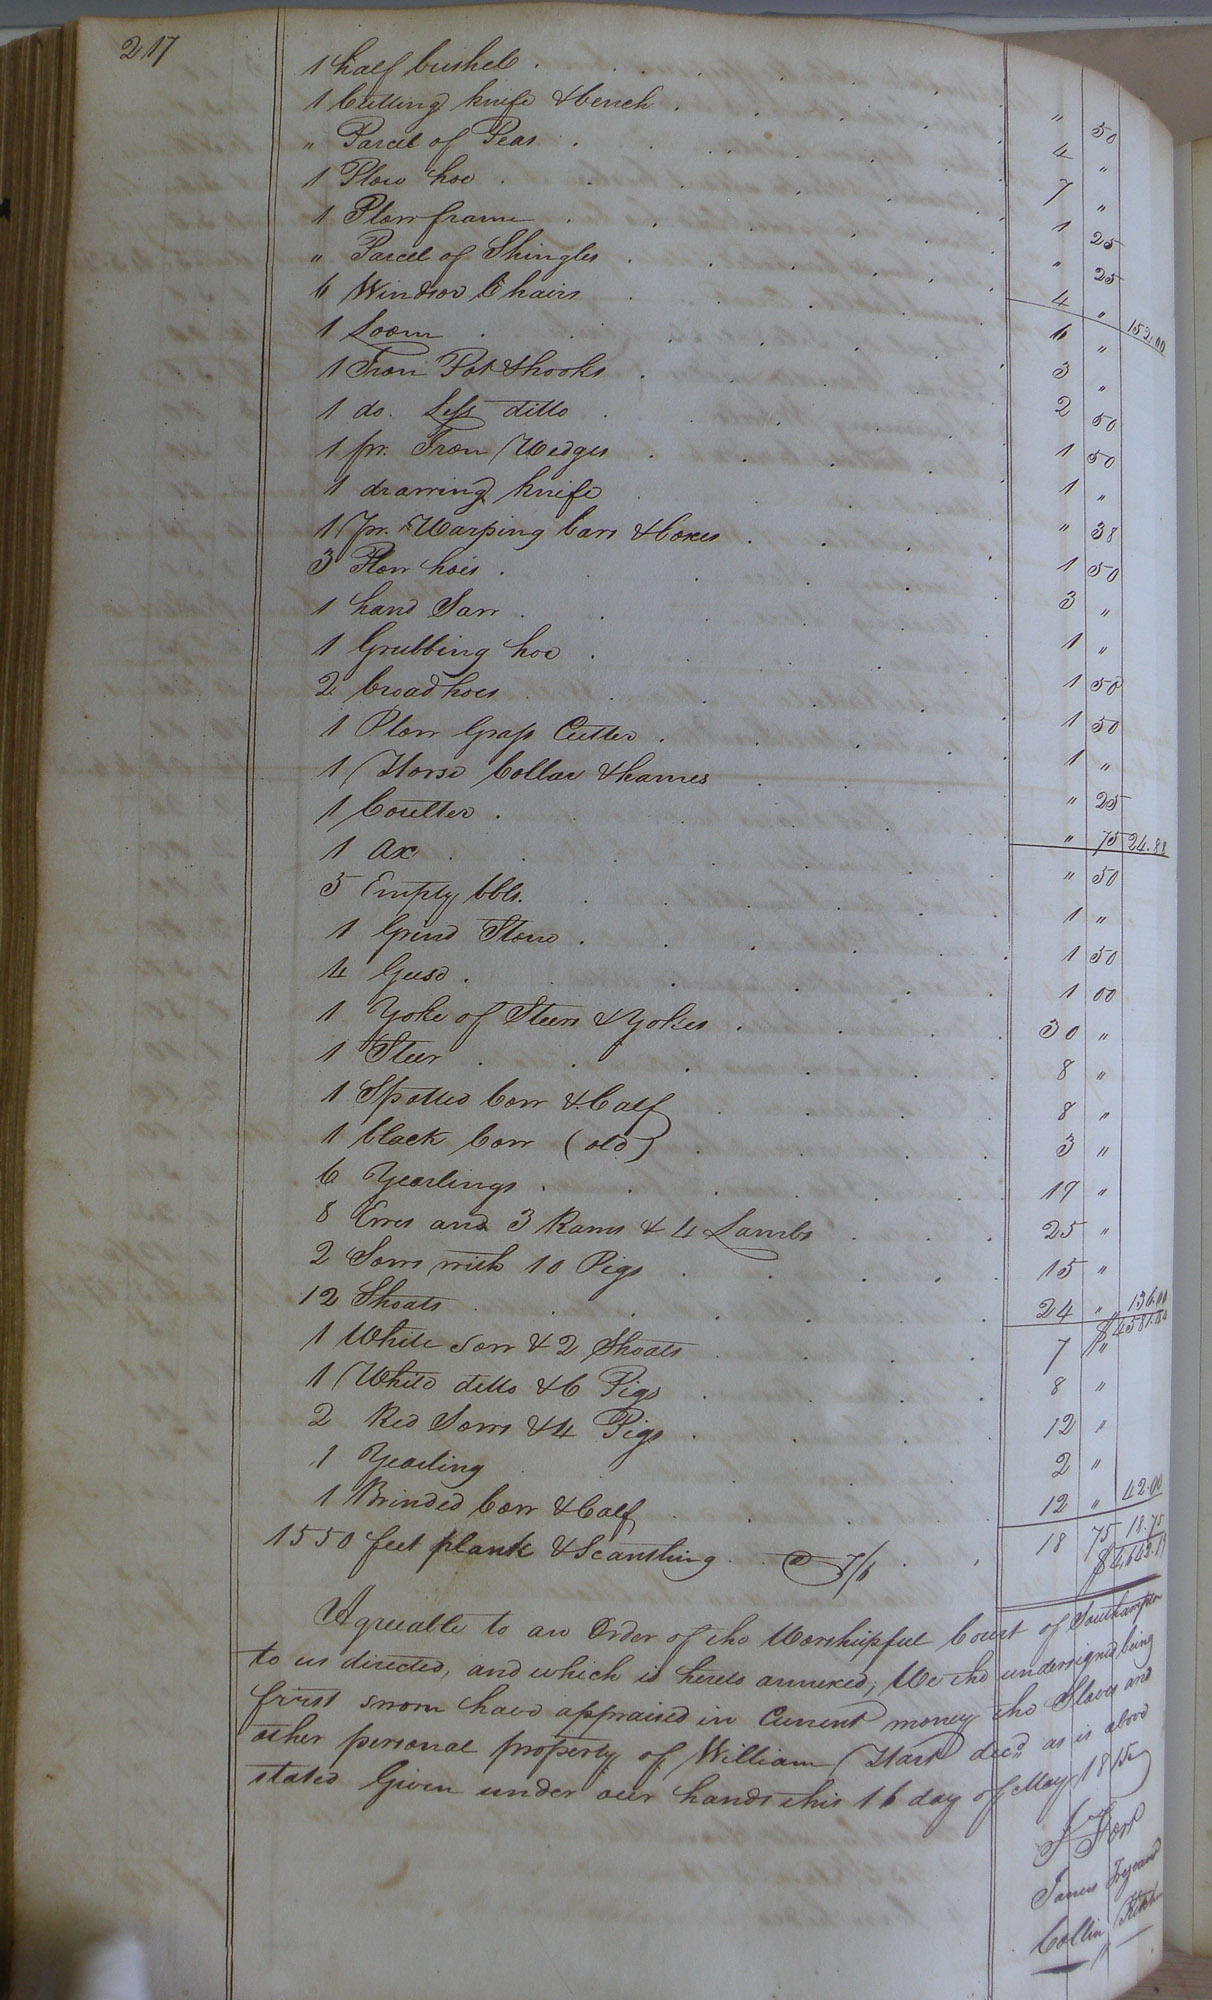 217
1 half bushel . . . . . . " 50
1 Cutting knife & bench . . . . 4 "
" Parcel of Peas . . . . . . 7 "
1 Plow hoe . . . . . 1 25
1 Plow frame . . . . . " 25
" Parcel of Shingles . . . . . 4 " 152.00
6 Windsor Chairs . . . . . 6 "
1 Loom . . . . . . 3 "
1 Iron Pot & hooks . . . . . 2 50
1 do. Less ditto . . . . . 1 50
1 pr. Iron Wedges . . . . . 1 "
1 drawing knife . . . . " 38
1 pr. Warping bars & boxes . . . . 1 50
3 Plow hoes . . . . . 3 "
1 hand Saw . . . . . 1 "
1 Grubbing hoe . . . . . 1 50
2 broad hoes . . . . . 1 50
1 Plow Grass Cutter . . . . . 1 "
1 Horse Collar & hames . . . " 25
1 Coulter . . . . . " 75 24.88
1 Ax . . . . . . " 50
5 Empty bbls. . . . . . 1 "
1 Grind Stone . . . . . 1 50
4 Geese . . . . . 1 00
1 Yoke of Steers & Yokes . . . . 30 "
1 Steer . . . . . 8 "
1 Spotted Cow & Calf . . . . 8 "
1 black Cow (old) . . . . 3 "
6 Yearlings . . . . . 17 "
8 Ewes and 3 Rams & 4 Lambs . . . 25 "
2 Sows with 10 Pigs . . . . . 15 "
12 Shoats . . . . . 24 " 136.00
1 White Sow & 2 Shoats . . . . 7 "
1 White ditto & 6 Pigs . . . . 8 "
2 Red Sows & 4 Pigs . . . . 12 "
1 Yearling . . . . 2 "
1 Brinded Cow & Calf . . . . 12 " 42.00
1550 feet plank & Scantling . . @ 7/6 . . 18 75 18.75
Agreeable to an Order of the Worshipful Court of Southampton
to us directed, and which is hereto annexed, We the undersigned being
first sworn have appraised in Current money the Slaves and
other personal property of William Hart decd. as is above
stated Given under our hands this 16 day of May 1815
J Fort
James
Collin Kitchen